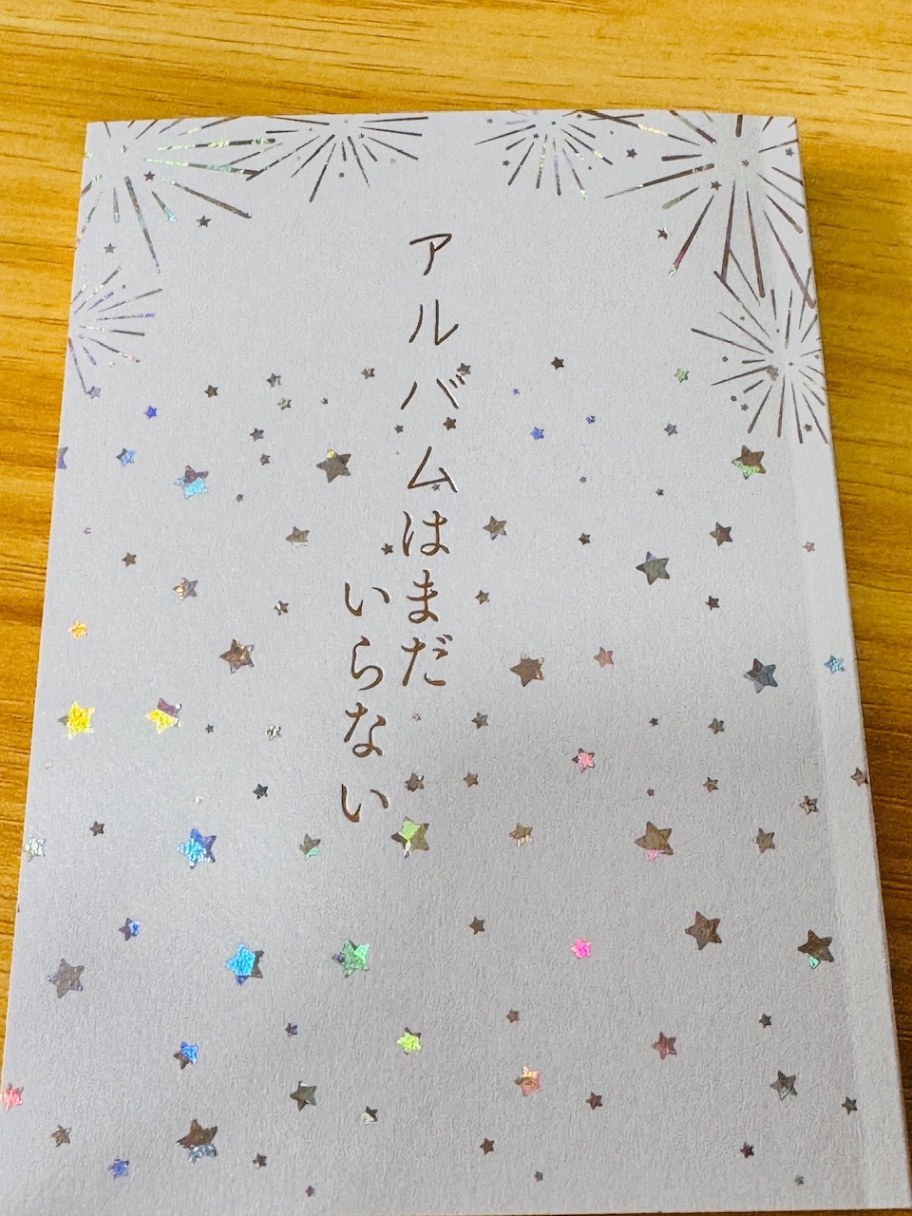 アルバムはまだ
いらない